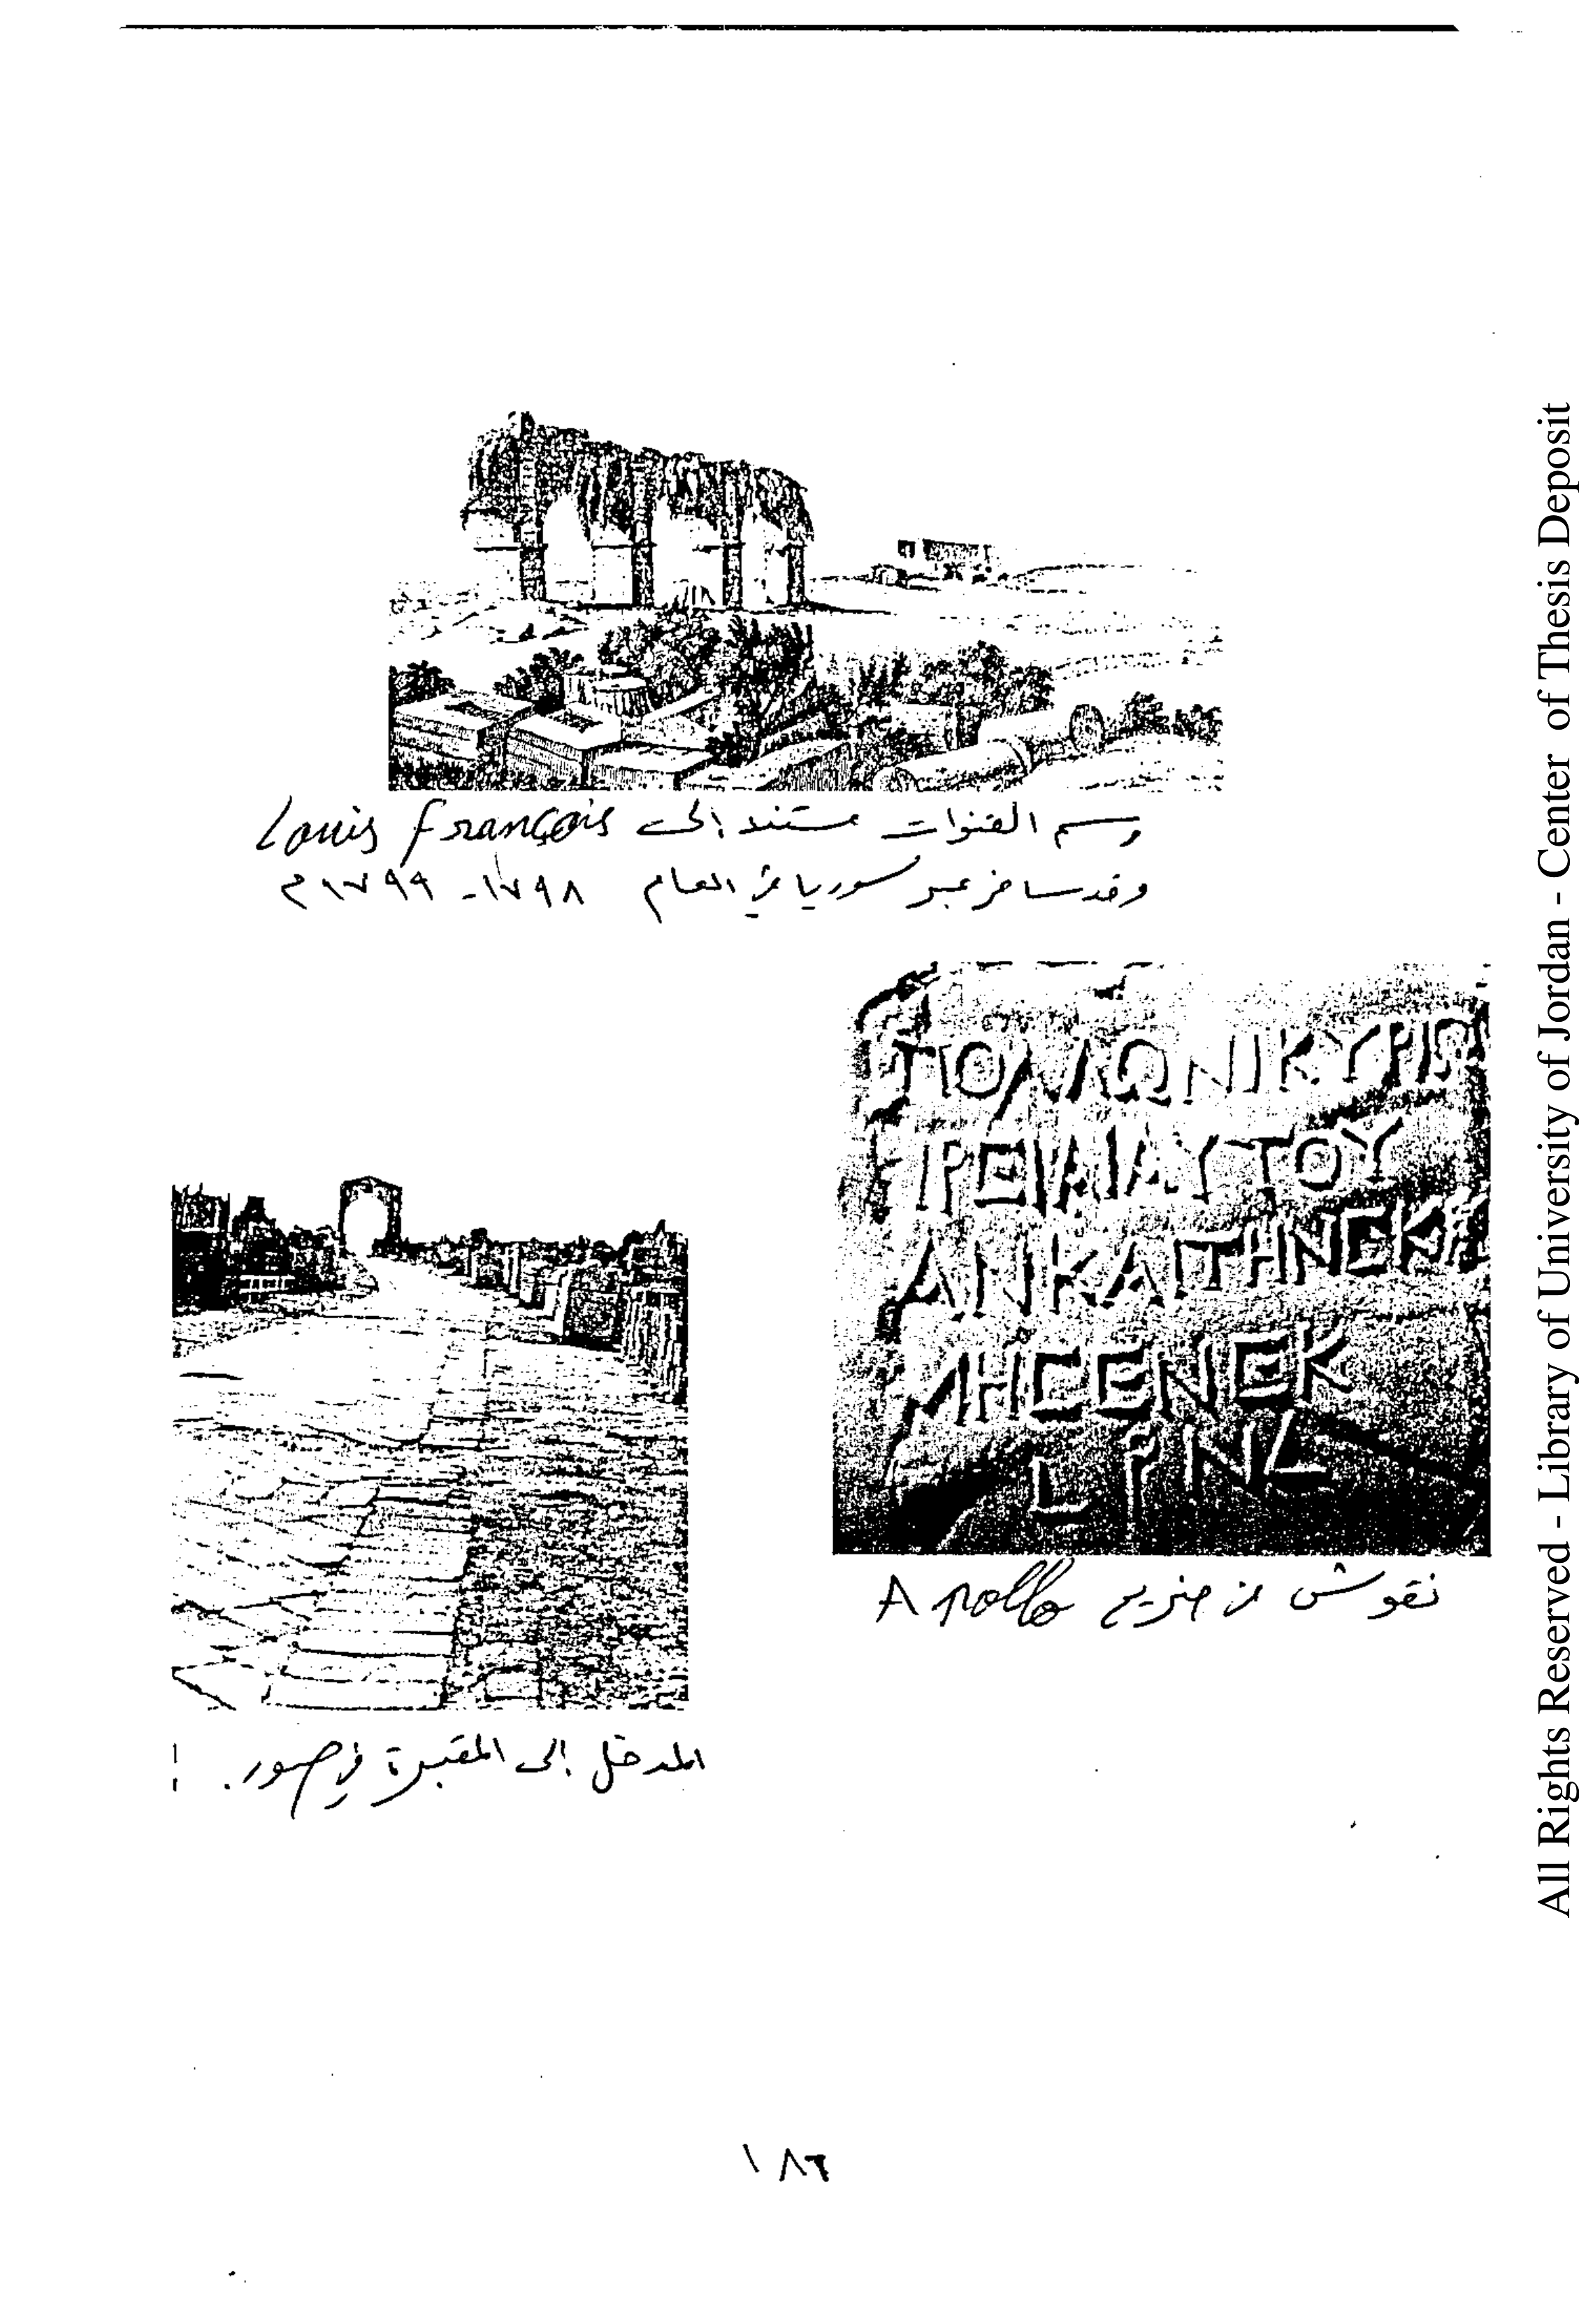 رسم القنوات مستند إلى Louis François
وقد سافر عبر سوريا في العام ١٧٩٨ - ١٧٩٩م
ΠΟΛΛΩΝΙΚΥΡΙΩ
ΤΟΥ
ΑΝΚΑΙΤΗΝΕΚ
ΗCΕΝΕΚ
نقوش من ضريح Apollo
المدخل إلى المقبرة في صور.
١٨٦
All Rights Reserved - Library of University of Jordan - Center of Thesis Deposit